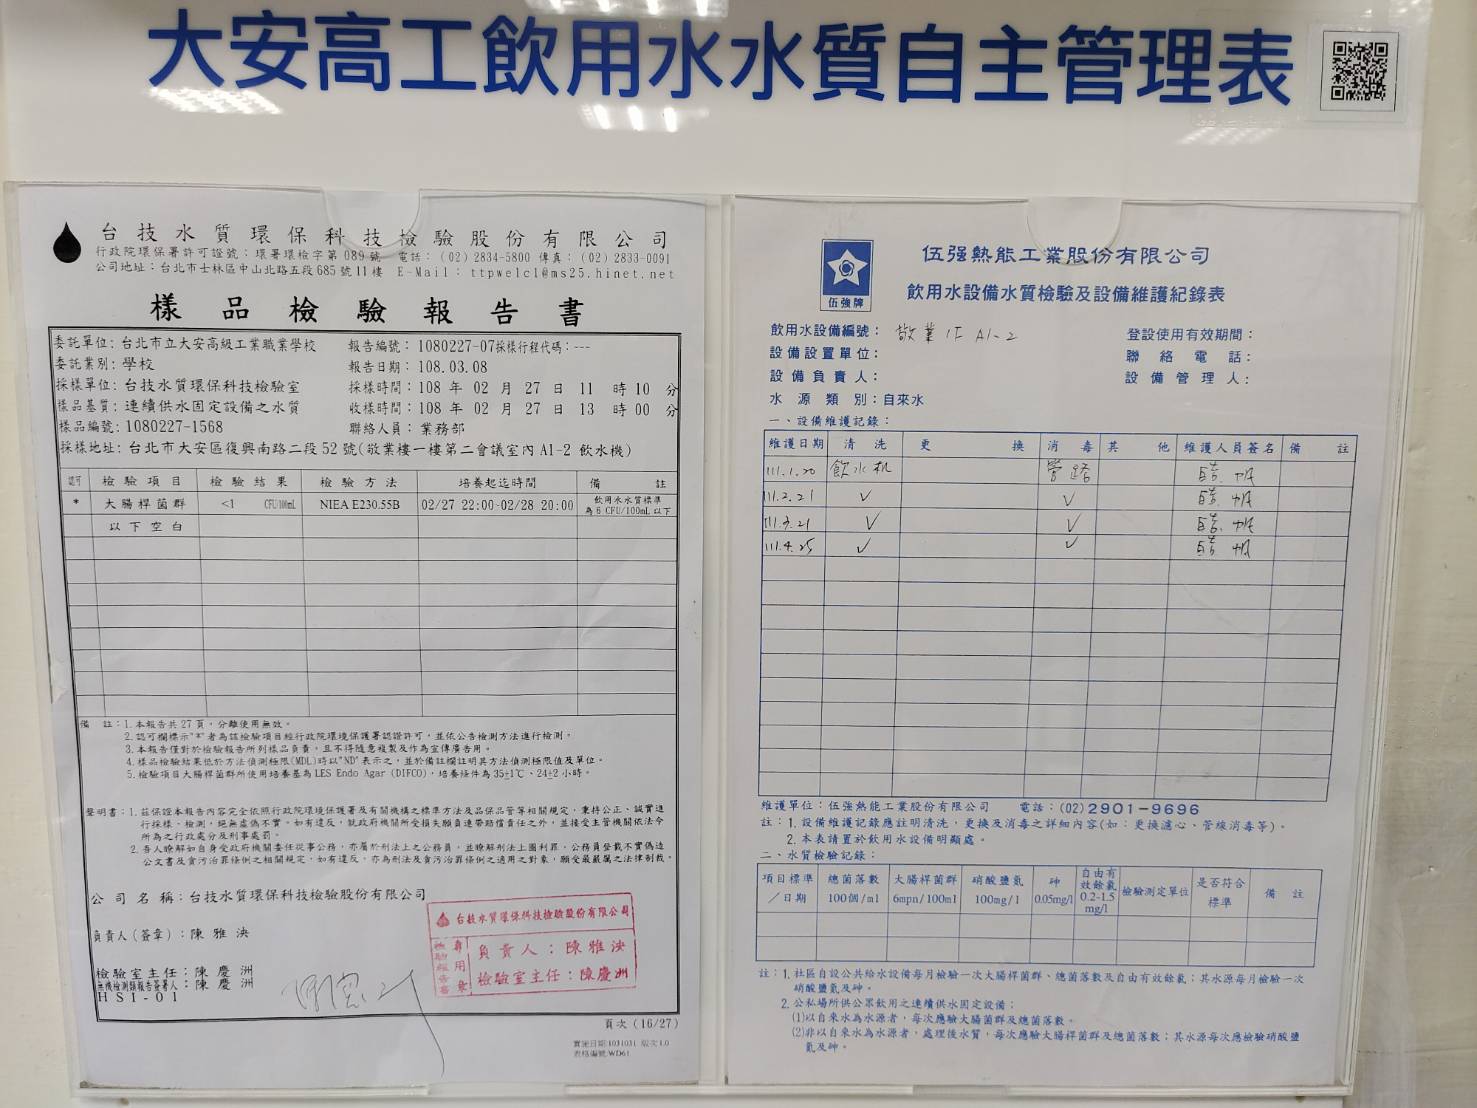 大安高工飲用水水質自主管理表
台技水質環保科技檢驗股份有限公司
行政院環保署許可證號：環署環檢字第 089 號 電話：(02) 2834-5800 傳真：(02) 2833-0091
公司地址：台北市士林區中山北路五段 685 號 11 樓 E-Mail：ttpwelcl@ms25.hinet.net
樣品檢驗報告書
委託單位：台北市立大安高級工業職業學校 報告編號：1080227-07採樣行程代碼：---
委託業別：學校 報告日期：108.03.08
採樣單位：台技水質環保科技檢驗室 採樣時間：108 年 02 月 27 日 11 時 10 分
樣品基質：連續供水固定設備之水質 收樣時間：108 年 02 月 27 日 13 時 00 分
樣品編號：1080227-1568 聯絡人員：業務部
採樣地址：台北市大安區復興南路二段 52 號(敬業樓一樓第二會議室內 A1-2 飲水機)
認可 檢驗項目 檢驗結果 檢驗方法 培養起迄時間 備註
* 大腸桿菌群 <1 CFU/100mL NIEA E230.55B 02/27 22:00-02/28 20:00 飲用水水質標準
為 6 CFU/100mL 以下
以下空白
備 註：1.本報告共 27 頁，分離使用無效。
2.認可欄標示"*"者為該檢驗項目經行政院環境保護署認證許可，並依公告檢測方法進行檢測。
3.本報告僅對於檢驗報告所列樣品負責，且不得隨意複製及作為宣傳廣告用。
4.樣品檢驗結果低於方法偵測極限(MDL)時以"ND"表示之，並於備註欄註明其方法偵測極限值及單位。
5.檢驗項目大腸桿菌群所使用培養基為 LES Endo Agar (DIFCO)，培養條件為 35±1℃、24±2 小時。
聲明書：1.茲保證本報告內容完全依照行政院環境保護署及有關機構之標準方法及品保品管等相關規定，秉持公正、誠實進
行採樣、檢測，絕無虛偽不實。如有違反，就政府機關所受損失願負連帶賠償責任之外，並接受主管機關依法令
所為之行政處分及刑事處罰。
2.吾人瞭解如自身受政府機關委任從事公務，亦屬於刑法上之公務員，並瞭解刑法上圖利罪、公務員登載不實偽造
公文書及貪污治罪條例之相關規定，如有違反，亦為刑法及貪污治罪條例之適用之對象，願受最嚴厲之法律制裁。
公司名稱：台技水質環保科技檢驗股份有限公司
負責人(簽章)：陳雅泱
檢驗室主任：陳慶洲
無機檢測類報告簽署人：陳慶洲
HSI-01
台技水質環保科技檢驗股份有限公司
檢驗報告書專用章
負責人：陳雅泱
檢驗室主任：陳慶洲
頁次 (16/27)
實施日期:1031031 版次 1.0
表格編號:WD61
伍強牌
伍强熱能工業股份有限公司
飲用水設備水質檢驗及設備維護紀錄表
飲用水設備編號：敬業 1F A1-2 登設使用有效期間：
設備設置單位： 聯絡電話：
設備負責人： 設備管理人：
水源類別：自來水
一、設備維護記錄：
維護日期 清洗 更換 消毒 其他 維護人員簽名 備註
111.1.20 飲水机 管路
111.2.21 ✓ ✓
111.3.21 ✓ ✓
111.4.25 ✓ ✓
維護單位：伍強熱能工業股份有限公司 電話：(02)2901-9696
註：1.設備維護記錄應註明清洗，更換及消毒之詳細內容(如：更換濾心、管線消毒等)。
2.本表請置於飲用水設備明顯處。
二、水質檢驗記錄：
項目標準／日期 總菌落數 100個/ml 大腸桿菌群 6mpn/100ml 硝酸鹽氮 100mg/l 砷 0.05mg/l 自由有效餘氯 0.2-1.5 mg/l 檢驗測定單位 是否符合標準 備註
註：1.社區自設公共給水設備每月檢驗一次大腸桿菌群、總菌落數及自由有效餘氯；其水源每月檢驗一次
硝酸鹽氮及砷。
2.公私場所供公眾飲用之連續供水固定設備：
(1)以自來水為水源者，每次應驗大腸桿菌群及總菌落數。
(2)非以自來水為水源者，處理後水質，每次應驗大腸桿菌群及總菌落數；其水源每次應檢驗硝酸鹽
氮及砷。